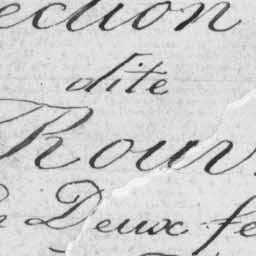 ection
dite
Rour
e Deux fe